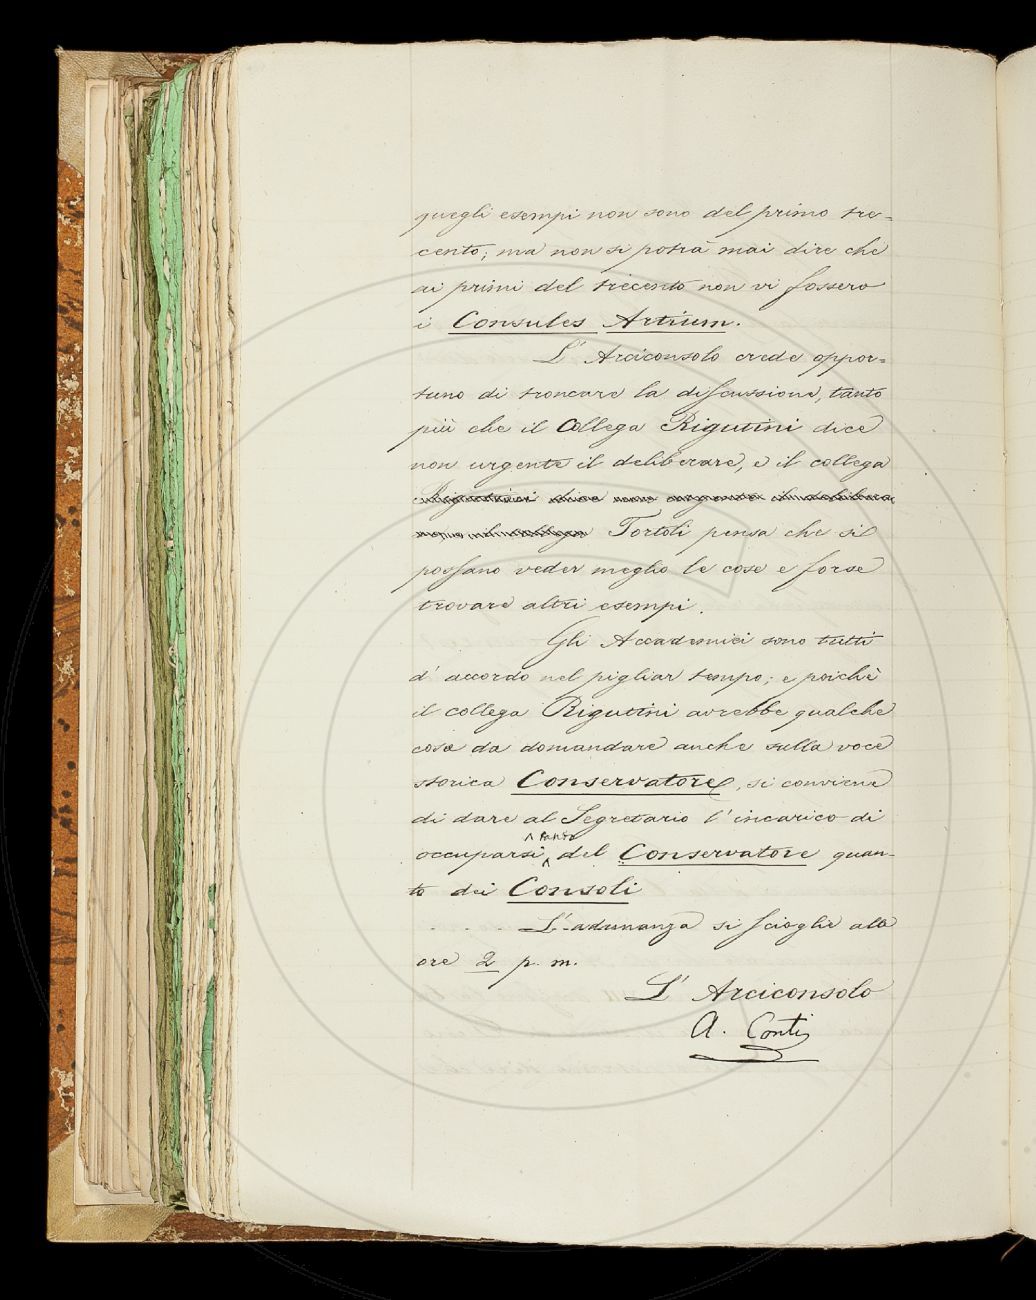 quegli esempi non sono del primo tre=
cento; ma non si potrà mai dire che
ai primi del trecento non vi fossero
i Consules Artium.
L' Arciconsolo crede oppor=
tuno di troncare la discussione, tanto
più che il Collega Rigutini dice
non urgente il deliberare, e il collega
Rigutini dice non urgente il delibera
Tortoli pensa che si
possano veder meglio le cose e forse
trovare altri esempi.
Gli Accademici sono tutti
d' accordo nel pigliar tempo; e poichè
il collega Rigutini avrebbe qualche
cosa da domandare anche sulla voce
storica Conservatore, si conviene
di dare al Segretario l' incarico di
tanto
occuparsi del Conservatore quan-
to dei Consoli
L' adunanza si scioglie alle
ore 2 p. m.
L' Arciconsolo
A. Conti